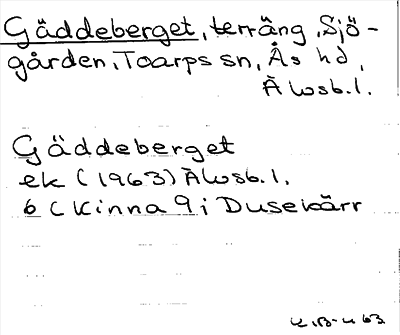 Gäddeberget, terräng, Sjö-
gården, Toarps sn, Ås hd,
Älvsb. l.
Gäddeberget
ek (1963) Älvsb. l.
6 C Kinna 9 i Dusekärr